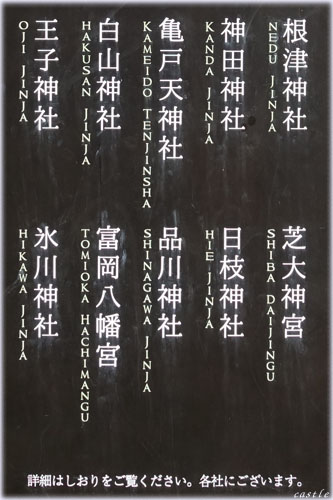 根津神社
NEDU JINJA
神田神社
KANDA JINJA
亀戸天神社
KAMEIDO TENJINSHA
白山神社
HAKUSAN JINJA
王子神社
OJI JINJA
芝大神宮
SHIBA DAIJINGU
日枝神社
HIE JINJA
品川神社
SHINAGAWA JINJA
富岡八幡宮
TOMIOKA HACHIMANGU
氷川神社
HIKAWA JINJA
詳細はしおりをご覧ください。各社にございます。
castle